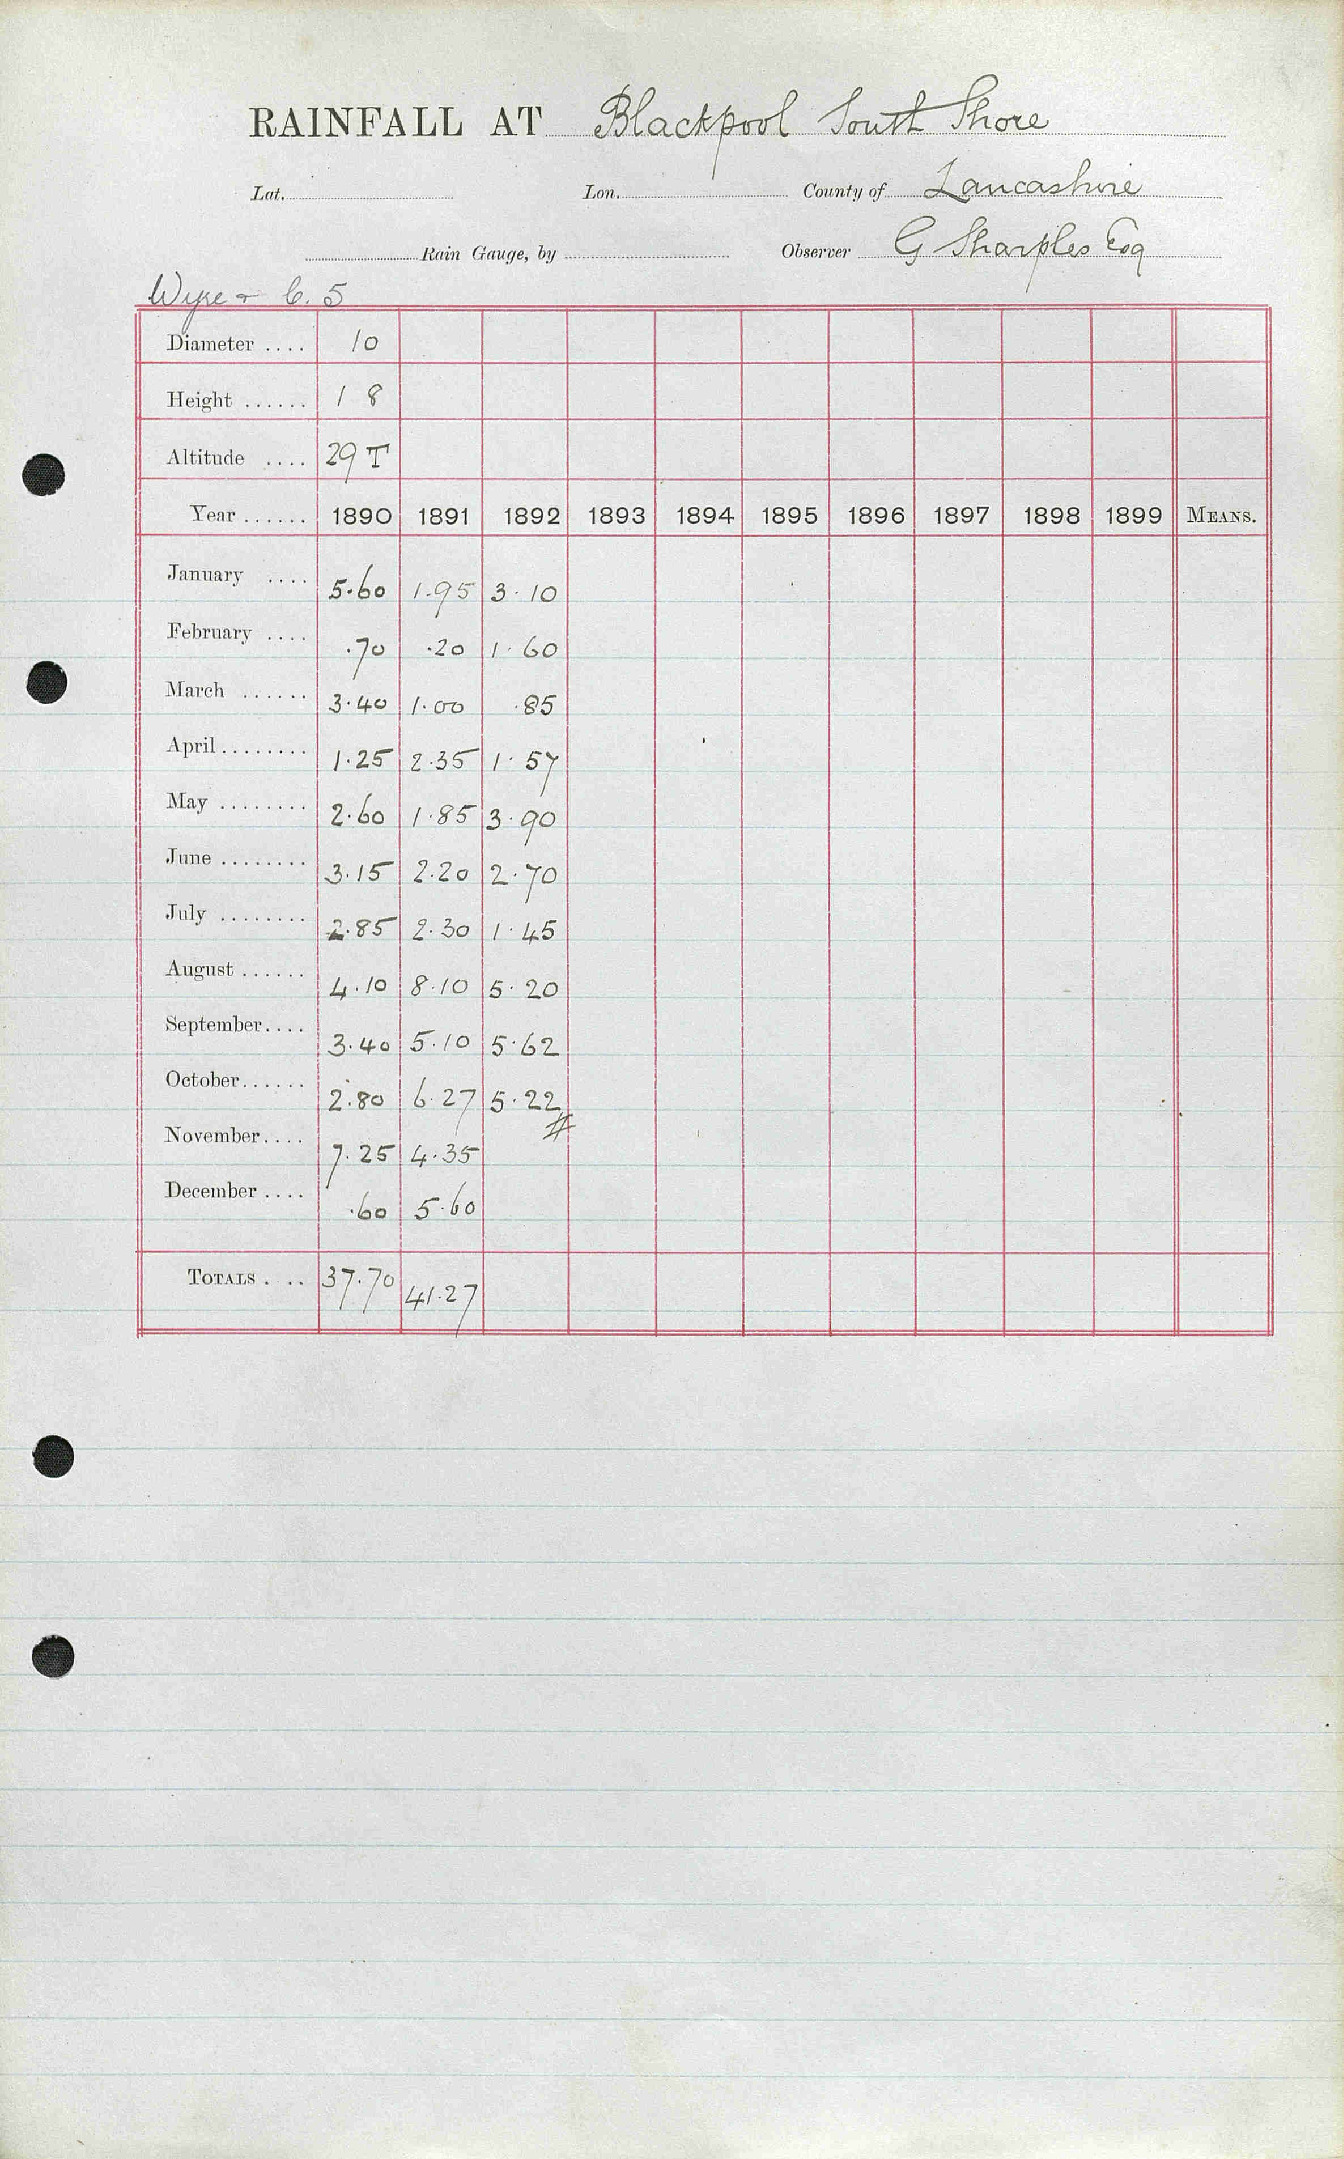 RAINFALL AT Blackpool South Shore
Lat. Lon. County of Lancashire
Rain Gauge, by Observer G Sharples Esq
Wyre + C. 5
Diameter .... 10
Height ...... 1 8
Altitude .... 29 T
Year ...... 1890 1891 1892 1893 1894 1895 1896 1897 1898 1899 MEANS.
January .... 5.60 1.95 3.10
February .... .70 .20 1.60
March ...... 3.40 1.00 .85
April ........ 1.25 2.35 1.57
May ........ 2.60 1.85 3.90
June ........ 3.15 2.20 2.70
July ........ 2.85 2.30 1.45
August ...... 4.10 8.10 5.20
September.... 3.40 5.10 5.62
October...... 2.80 6.27 5.22
#
November.... 7.25 4.35
December .... .60 5.60
TOTALS . .. 37.70 41.27